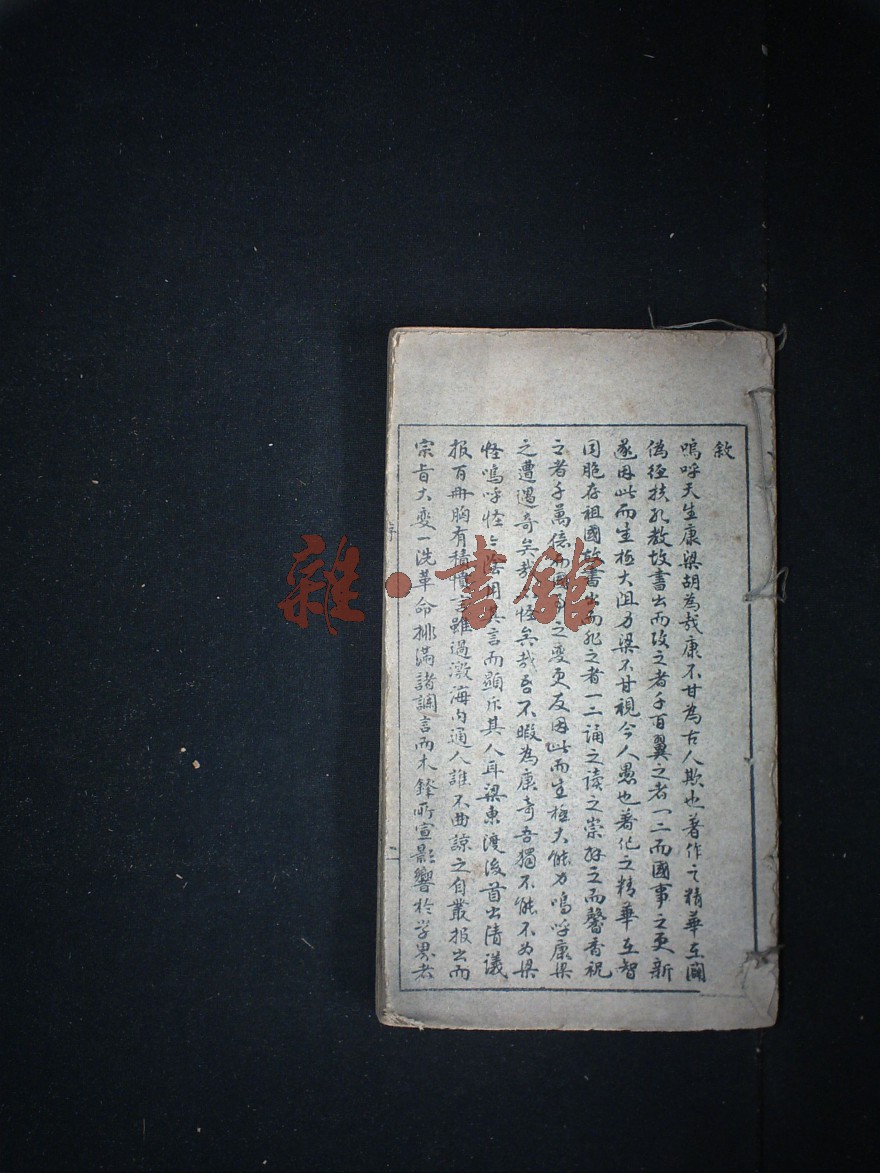 敘
嗚呼天生康梁胡為哉康不甘為古人欺也著作之精華在闢
偽經扶孔教故書出而攻之者千百翼之者一二而國事之更新
遂因此而生極大阻力梁不甘視今人愚也著作之精華在智
同胞存祖國故書出而非之者一二誦之讀之崇拜之而馨香祝
之者千萬億而國之變更反因此而生極大能力嗚呼康梁
之遭遇奇矣哉怪矣哉吾不暇為康奇吾獨不能不為梁
怪嗚呼怪陰用其言而顯斥其人耳梁東渡後首出清議
报百冊胸有積言雖過激海內通人誰不曲諒之自叢报出而
宗旨大變一洗革命排滿諸讕言而木鋒所宣影響於学界者
序
一
雜·書館